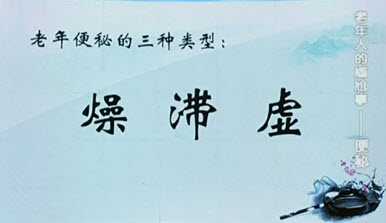 老年便秘的三种类型:
燥 滞 虚
老年人的尴尬事——便秘